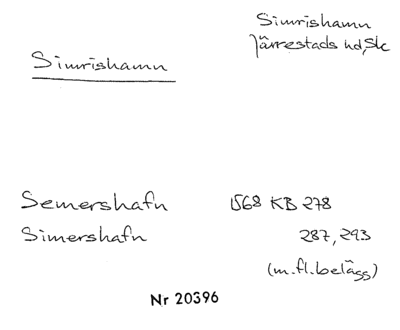 Simrishamn
Simrishamn
Järrestads hd, Sk
Semershafn 1568 KB 278
Simershafn 287, 293
(m.fl. belägg)
Nr 20396